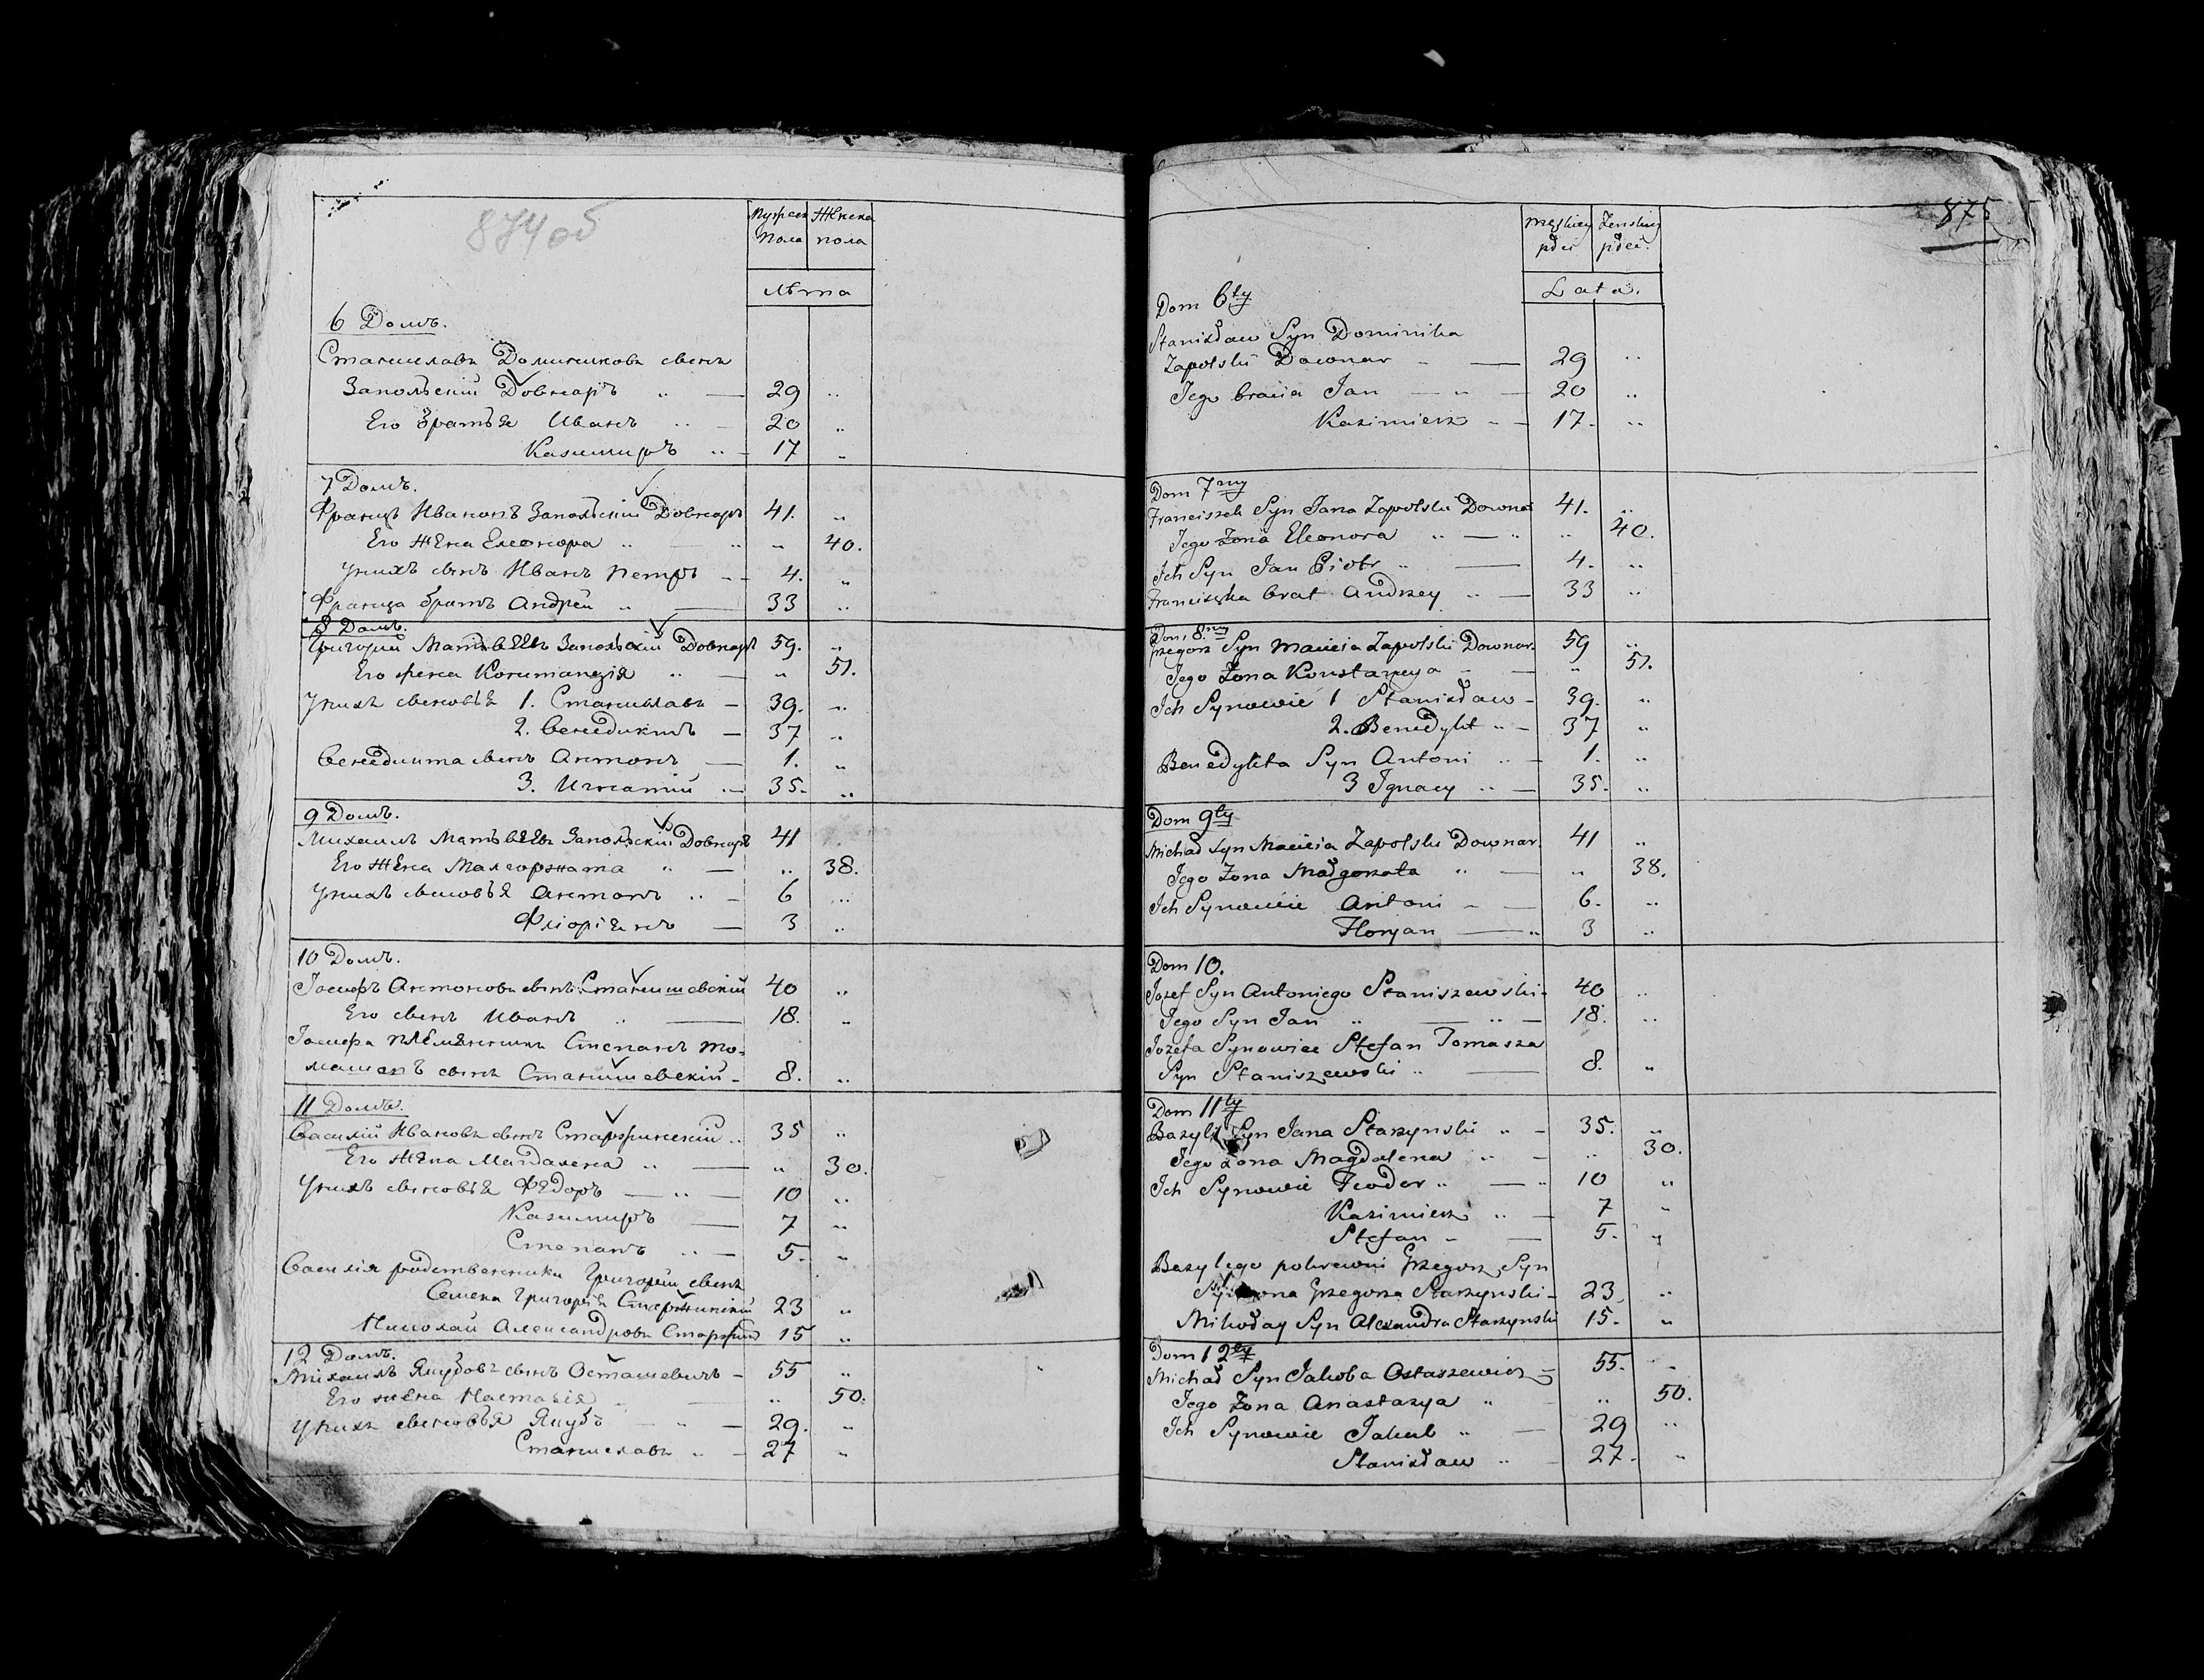 874 об
Мужеск Женска
пола пола
Лѣта
6 Домъ.
Станиславъ Доминиковъ сынъ
Запольскій Довнаръ „ — 29 „
Его братья Иванъ „ — 20 „
Казимиръ „ — 17 „
7 Домъ.
Францъ Ивановъ Запольскій Довнаръ 41. „
Его жена Елеонора „ — „ „ 40.
У нихъ сынъ Иванъ Петръ — 4. „
Франца братъ Андрей „ — 33 „
8 Домъ.
Григорій Матвѣевъ Запольскій Довнаръ 59. „
Его жена Констанція „ — „ 51.
У нихъ сыновья 1. Станиславъ — 39. „
2. Бенедиктъ — 37 „
Бенедикта сынъ Антонъ — 1. „
3. Игнатій „ — 35. „
9 Домъ.
Михаилъ Матвѣевъ Запольскій Довнаръ 41
Его жена Малгоржата „ — „ 38.
У нихъ сыновья Антонъ „ — 6 „
Флоріянъ — 3 „
10 Домъ.
Іосифъ Антоновъ сынъ Станишевскій 40 „
Его сынъ Иванъ „ — 18. „
Іосифа племянникъ Степанъ То-
машевъ сынъ Станишевскій - 8. „
11 Домъ.
Василій Ивановъ сынъ Старжинскій „ 35 „
Его жена Магдалена „ — „ 30.
У нихъ сыновья Фядоръ — „ — 10 „
Казимиръ — 7 „
Степанъ „ — 5. „
Василія родственники Григорій сынъ
Семена Григорія Старжинскій 23 „
Николай Александровъ Старжин 15 „
12 Домъ.
Михаилъ Якубовъ сынъ Осташевичъ - 55 „
Его жена Настазія „ „ 50.
У нихъ сыновья Якубъ — „ — 29. „
Станиславъ „ — 27 „
875
męskiey żenskiey
płci płci.
Lata.
Dom 6ty
Stanisław Syn Dominika
Zapolski Downar „ — 29 „
Jego bracia Jan — „ — 20 „
Kazimierz „ — 17. „
Dom 7my
Franciszek Syn Jana Zapolski Downar 41. „
Jego Żona Eleonora „ — „ „ 40.
Ich Syn Jan Piotr „ — 4. „
Franciszka brat Andrzey „ — 33 „
Dom 8my
Grzegorz Syn Macieia Zapolski Downar. 59 „
Jego Żona Konstancya — — „ 51.
Ich Synowie 1 Stanisław - 39. „
2. Benedykt „ — 37 „
Benedykta Syn Antoni „ — 1. „
3 Ignacy „ — 35. „
Dom 9ty
Michał Syn Macieia Zapolski Downar. 41 „
Jego Żona Małgorzata „ — „ 38.
Ich Synowie Antoni — — 6. „
Floryan — „ 3 „
Dom 10.
Jozef Syn Antoniego Staniszewski - 40 „
Jego Syn Jan „ — „ — 18. „
Jozefa Synowiec Stefan Tomasza
Syn Staniszewski „ — 8. „
Dom 11ty
Bazyli Syn Jana Starzynski „ — 35. „
Jego Żona Magdalena „ — „ 30.
Ich Synowie Teodor „ — „ 10 „
Kazimierz „ — 7 „
Stefan „ — 5. „
Bazylego pokrewni Grzegorz Syn
Symona Grzegorza Starzynski - 23 „
Mikołay Syn Alexandra Starzynski 15. „
Dom 12ty
Michał Syn Jakoba Ostaszewicz - 55. „
Jego Żona Anastazya „ „ 50.
Ich Synowie Jakub „ — 29 „
Stanisław „ — 27. „